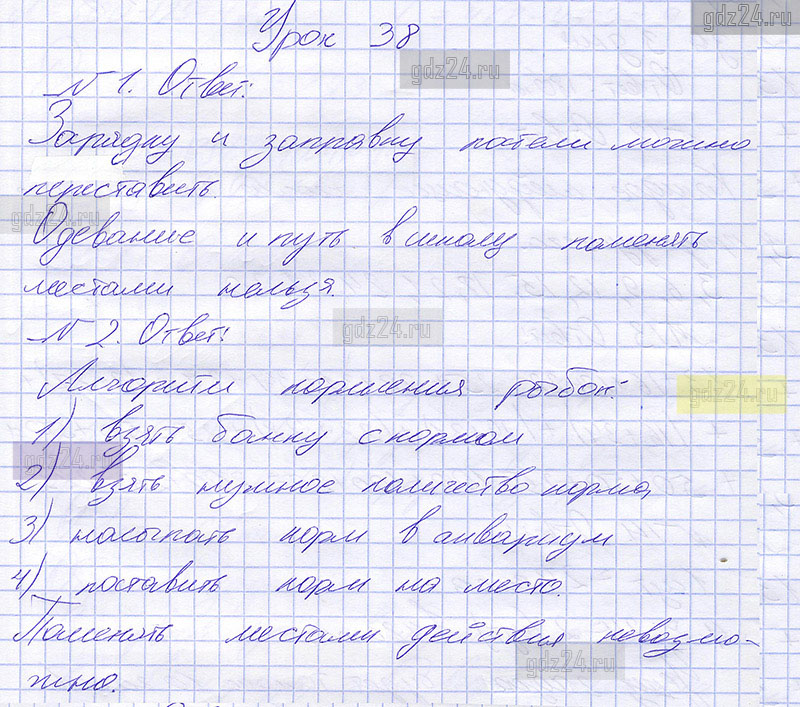 gdz24.ru
Урок 38
gdz24.ru
N 1. Ответ:
Зарядку и заправку постели можно
переставить.
gdz24.ru
Одевание и путь в школу поменять
местами нельзя.
N 2. Ответ:
gdz24.ru
Алгоритм кормления рыбок:
gdz24.ru
1) взять банку с кормом
gdz24.ru
2) взять нужное количество корма,
3) насыпать корм в аквариум
4) поставить корм на место.
Поменять местами действия невозмо-
жно.
gdz24.ru